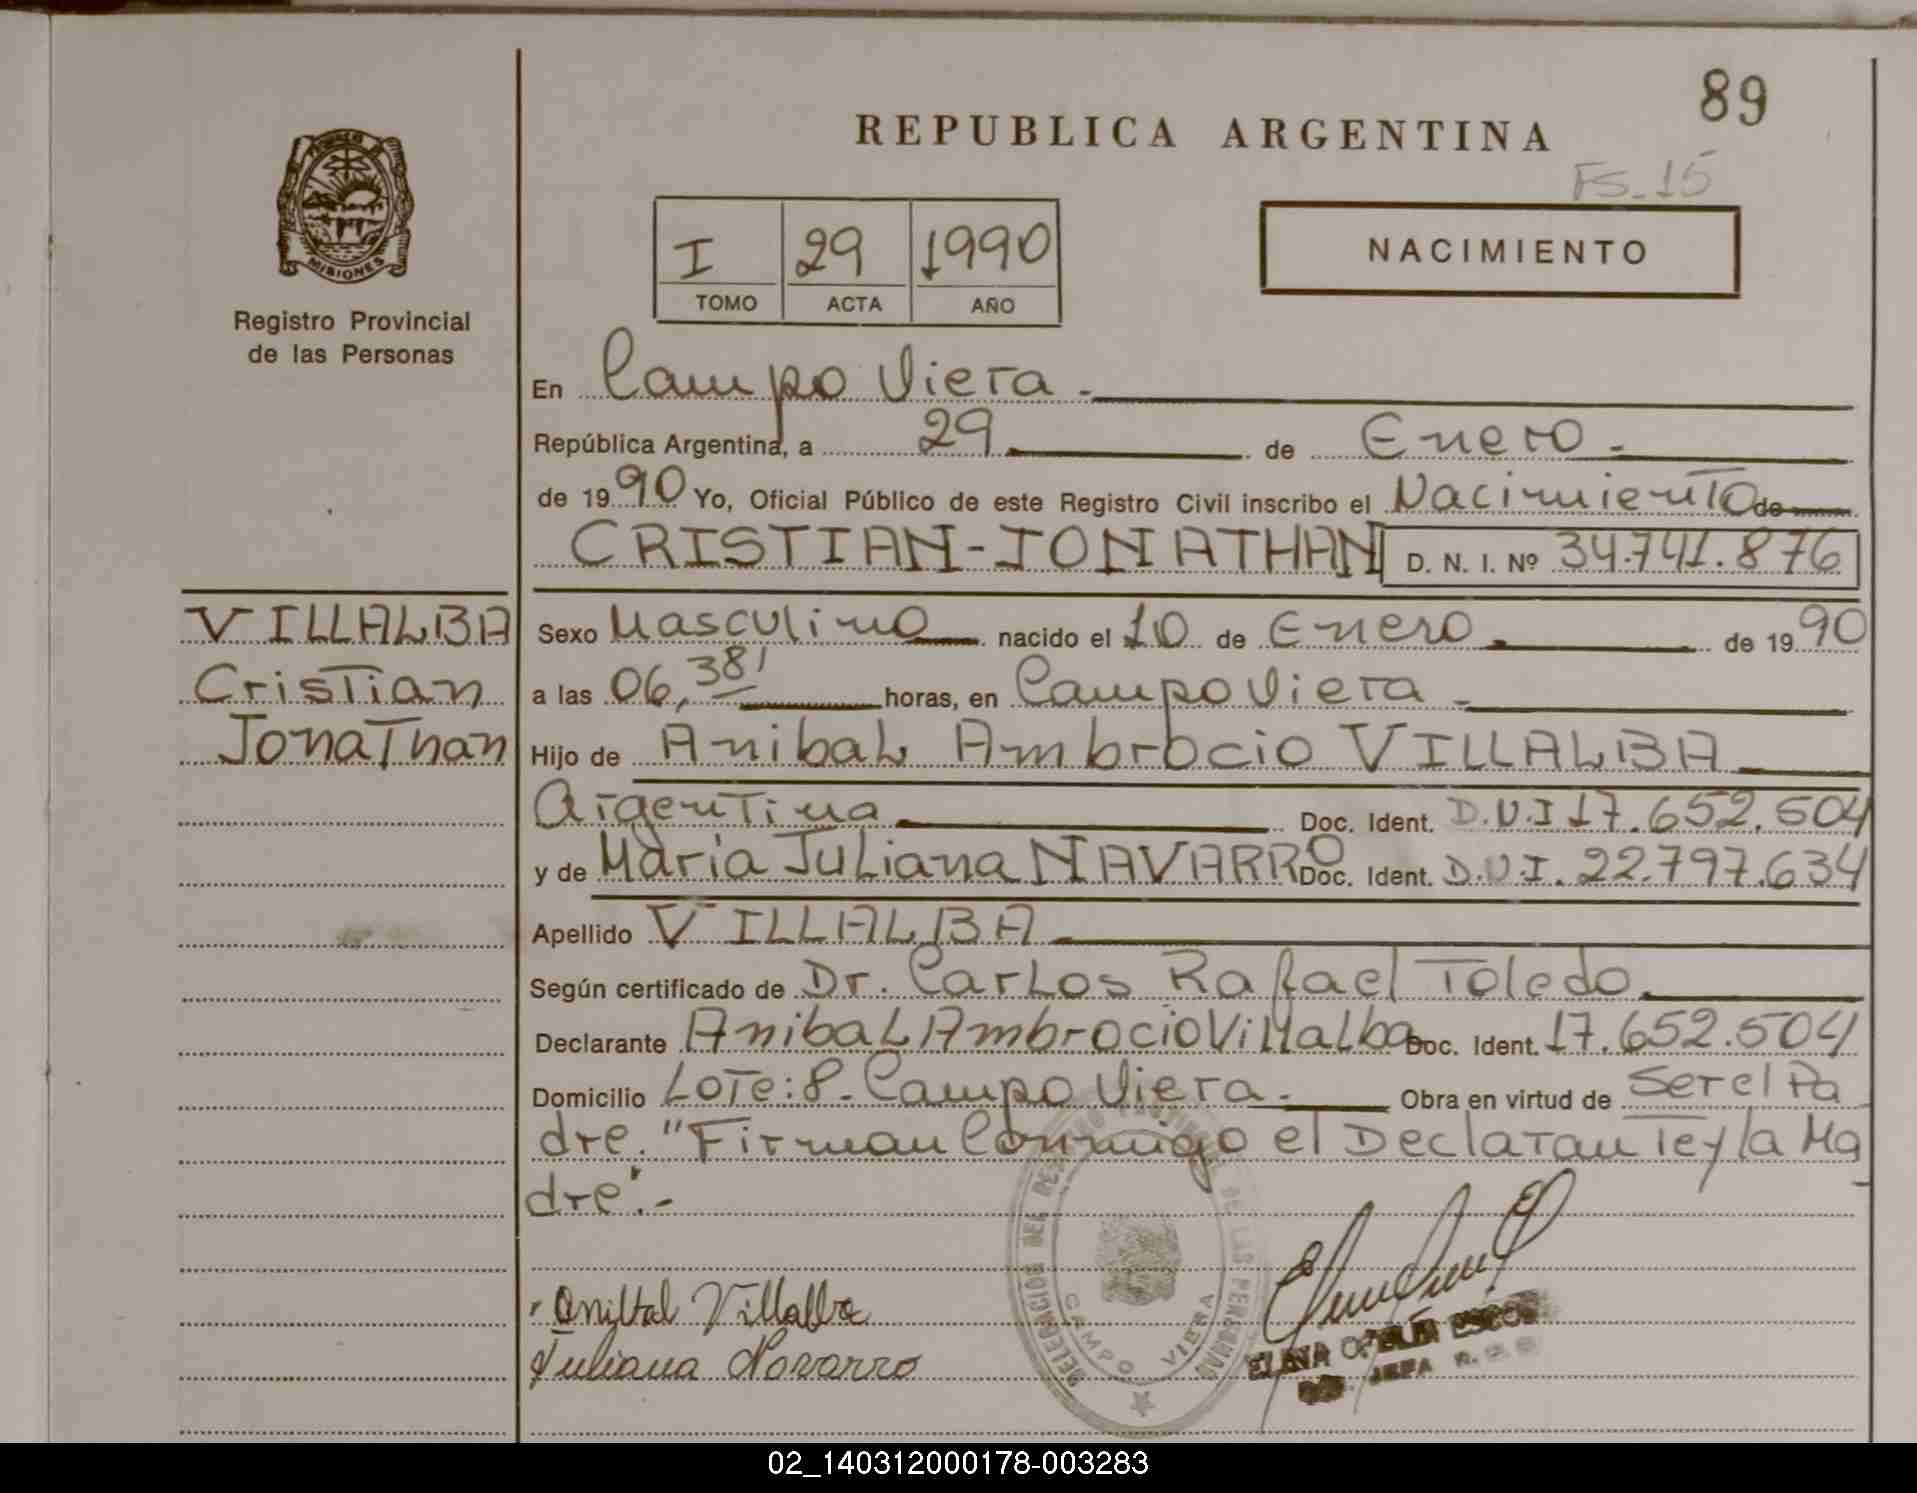 89
REPUBLICA ARGENTINA
FS-15
I 29 1990
TOMO ACTA AÑO
NACIMIENTO
MISIONES
Registro Provincial
de las Personas
En Campo Viera.
República Argentina, a 29 de Enero.
de 1990 Yo, Oficial Público de este Registro Civil inscribo el Nacimiento de
CRISTIAN-JONATHAN D. N. I. Nº 34.741.876
VILLALBA
Cristian
Jonathan
Sexo Masculino nacido el 10 de Enero. de 1990
a las 06,38' horas, en Campo Viera.
Hijo de Anibal Ambrocio VILLALBA
Argentina Doc. Ident. D.N.I 17.652.504
y de María Juliana NAVARRO Doc. Ident. D.N.I. 22.797.634
Apellido VILLALBA
Según certificado de Dr. Carlos Rafael Toledo.
Declarante Anibal Ambrocio Villalba Doc. Ident. 17.652.504
Domicilio Lote: 8. Campo Viera. Obra en virtud de ser el Pa
dre. "Firman Conmigo el Declarante y la Ma
dre".-
Anibal Villalba
Juliana Navarro
DELEGACION DEL DE LAS PERSONAS
CAMPO VIERA
JEFA
02_140312000178-003283